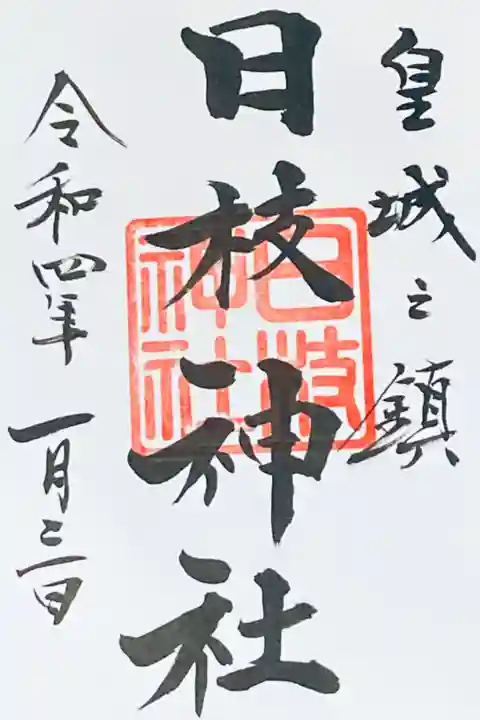 皇城之鎮
日枝神社
日枝
神社
令和四年一月三日